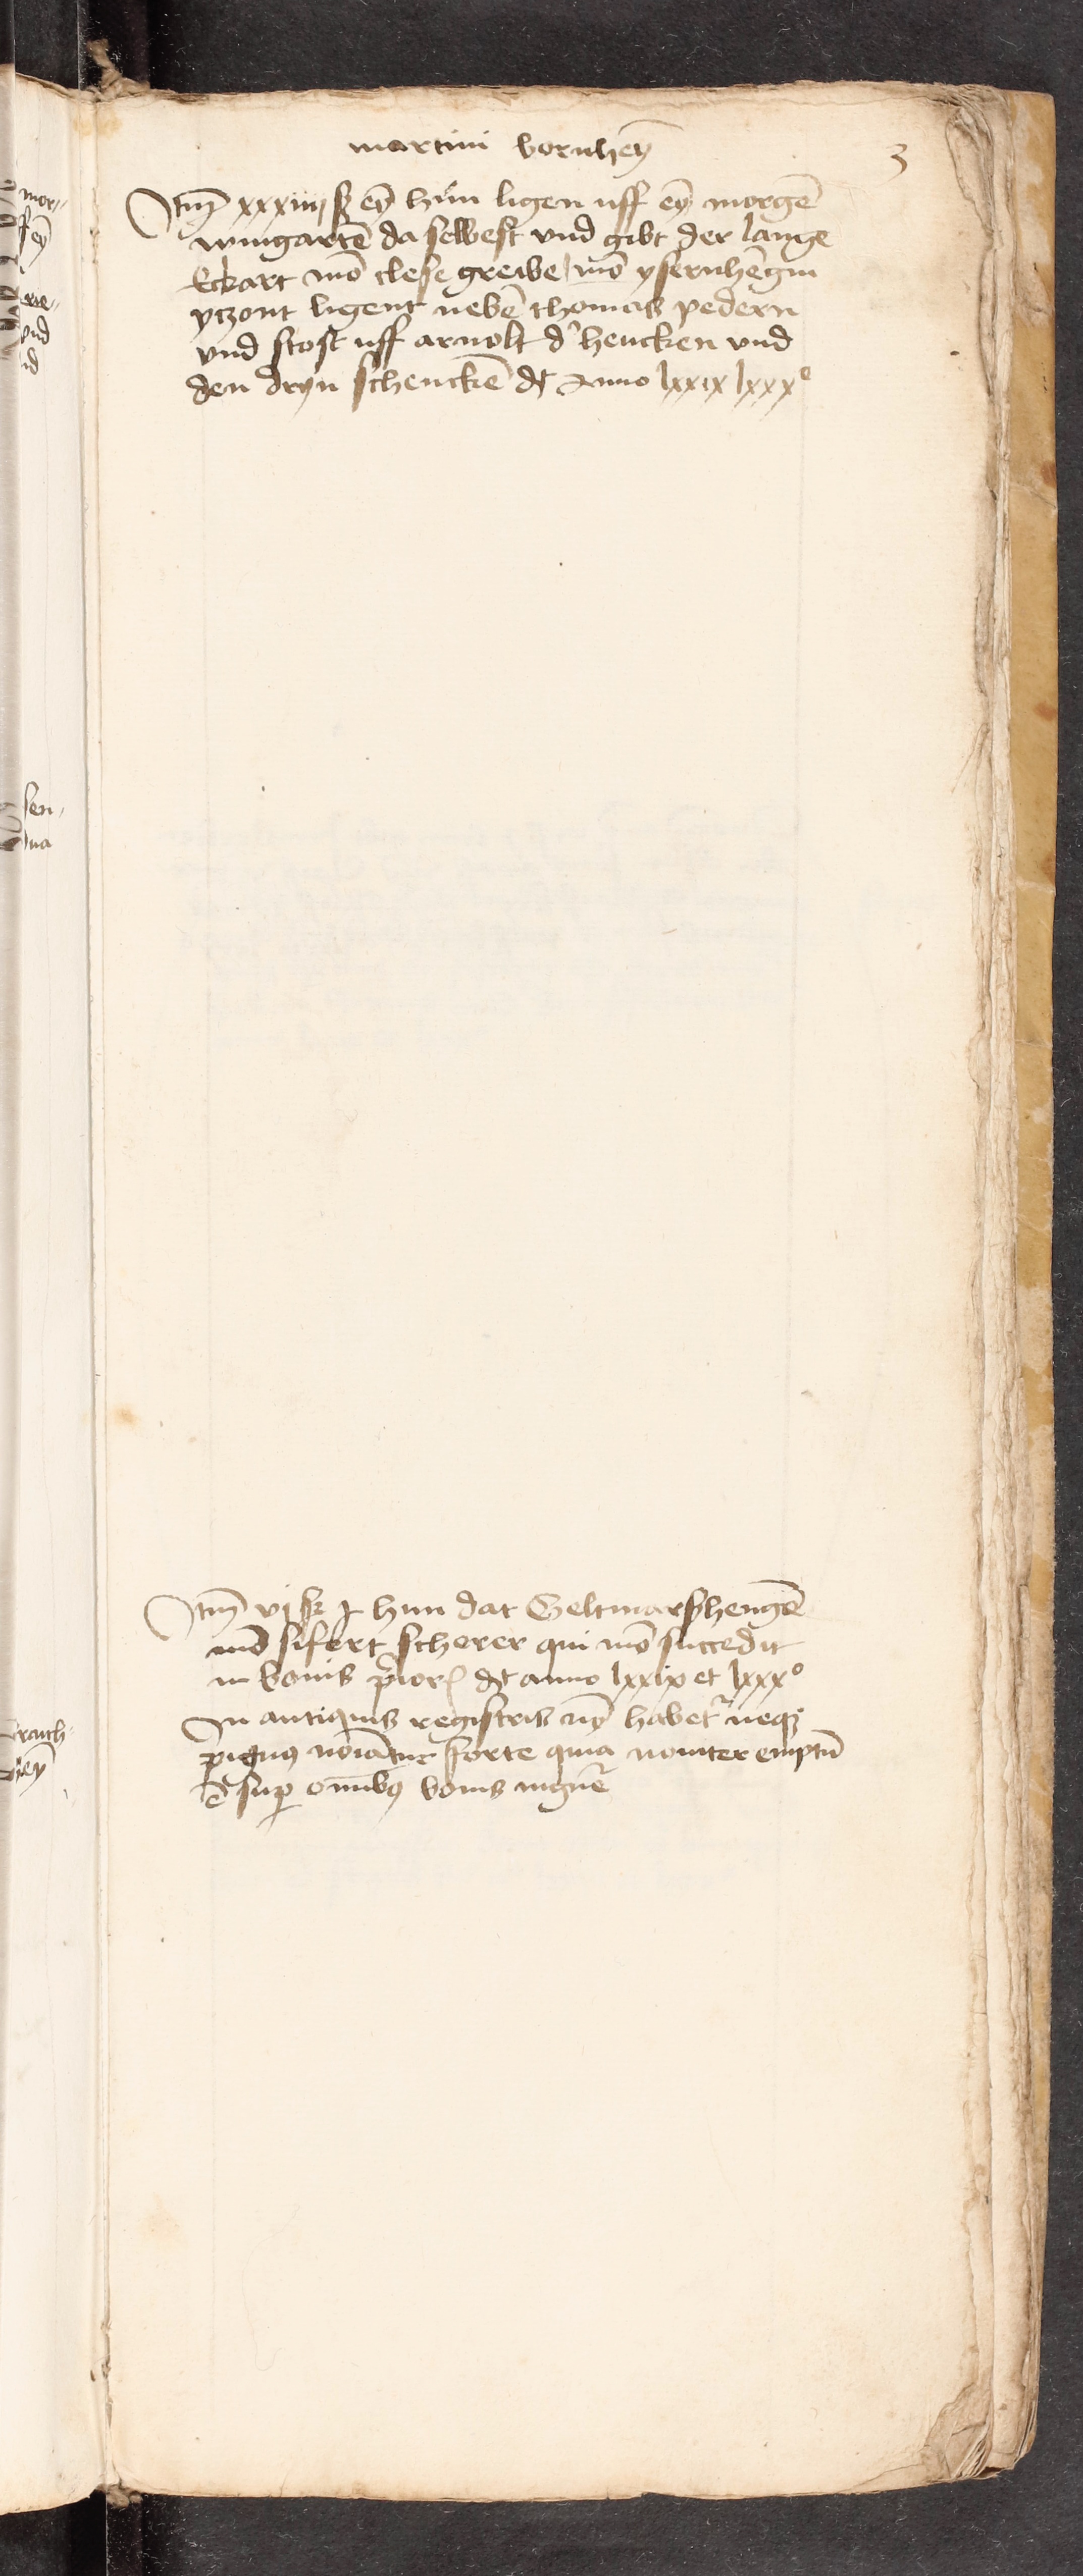 martini bornheȳ
3
Itm̄ xxxiiij ß eȳ hůn ligen uff eȳ morgē
wingartē da selbest vnd gibt der lange
Eckart mō clese grewe mō ysernhēgin
yczont ligent nebē thomas pedern
vnd stost uff arnolt d' hencken vnd
den dryn schenckē dt Anno lxxix lxxxº
Itm̄ vj ß j hun dat Geltmarßhengē
mō sifert scherer qui mō succedit
in bonis prior dt anno lxxix et lxxxº
In antiquis registris nō habet' neqʒ
pignꝰ noīatur forte quia nouiter emptū
ē sup omībꝰ bonis